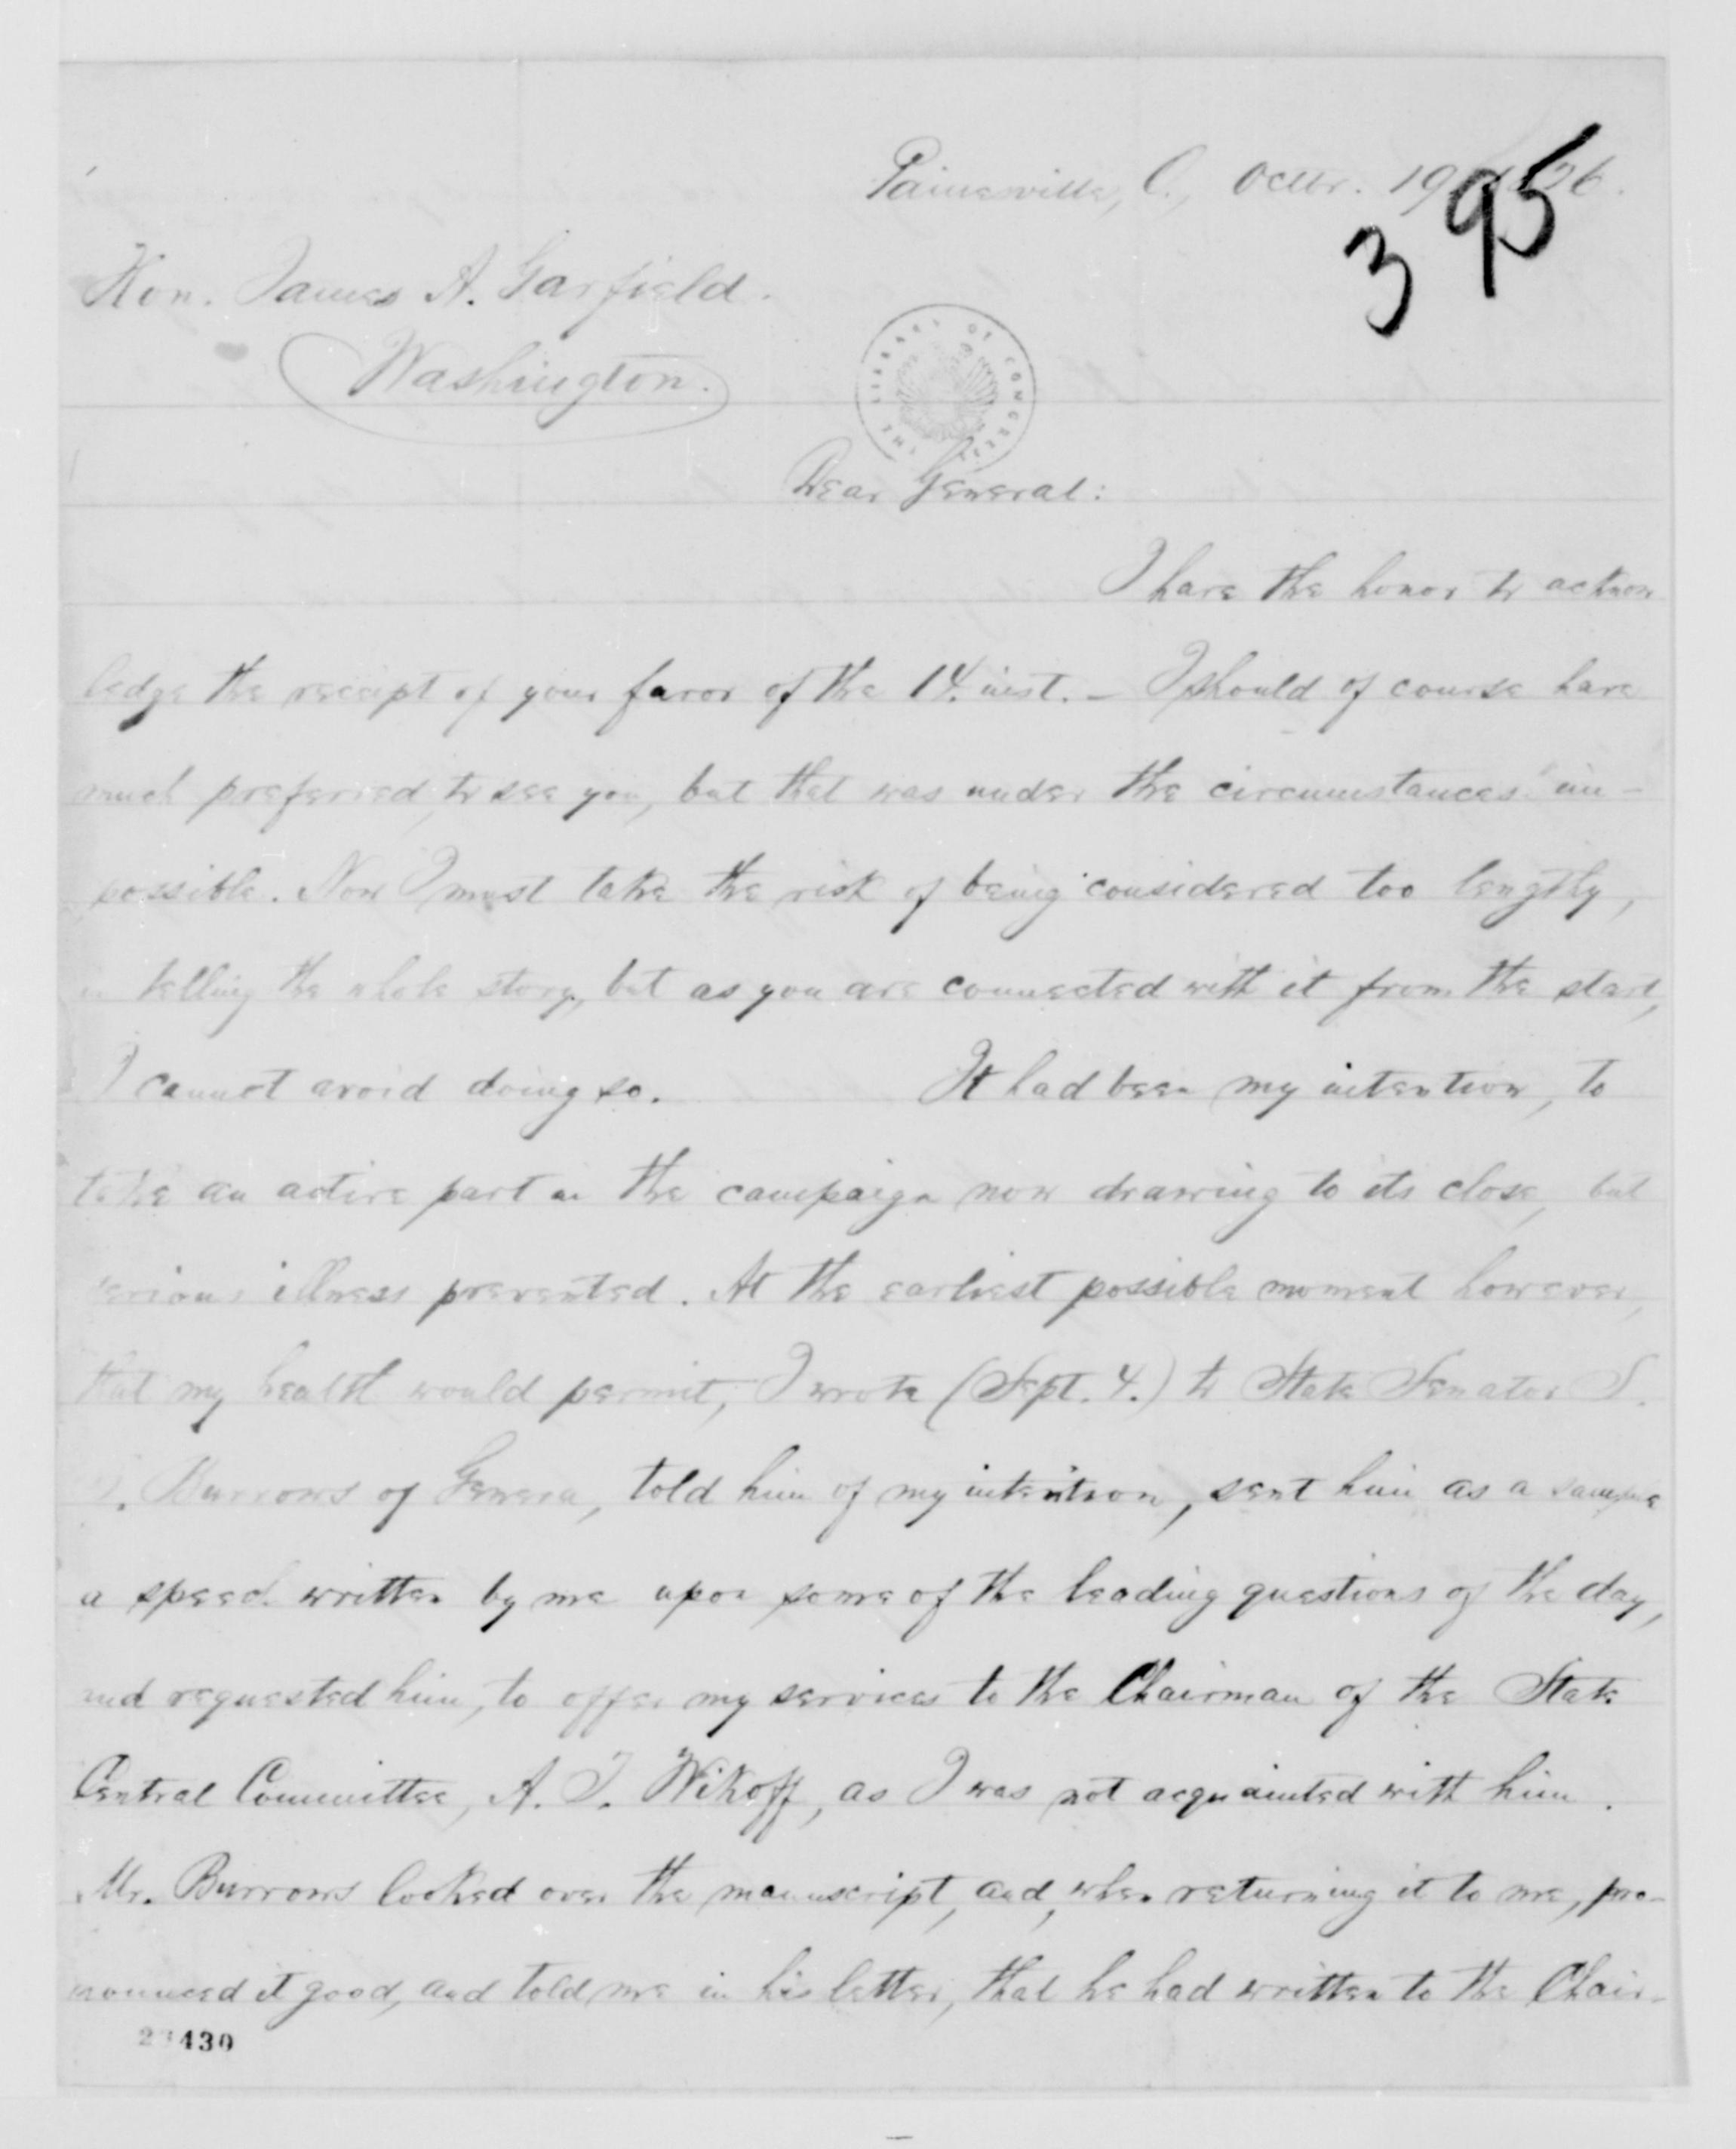 Painesville, O., Octbr. 19
395
Hon. James A. Garfield.
Washington.
THE LIBRARY OF CONGRESS
Dear General:
I have the honor to acknow
ledge the receipt of your favor of the 14. inst. – I should of course have
much preferred, to see you, but that was under the circumstances im-
possible. Now I must take the risk of being considered too lengthy,
in telling the whole story, but as you are connected with it from the start,
I cannot avoid doing so. It had been my intention, to
take an active part in the campaign now drawing to its close, but
serious illness prevented. At the earliest possible moment however,
that my health would permit, I wrote (Sept. 4.) to State Senator S.
Burrows of Geneva, told him of my intention, sent him as a sample
a speech written by me upon some of the leading questions of the day,
and requested him, to offer my services to the Chairman of the State
Central Committee, A. T. Wikoff, as I was not acquainted with him.
Mr. Burrows looked over the manuscript, and, when returning it to me, pro-
nounced it good, and told me in his letter, that he had written to the Chair-
430